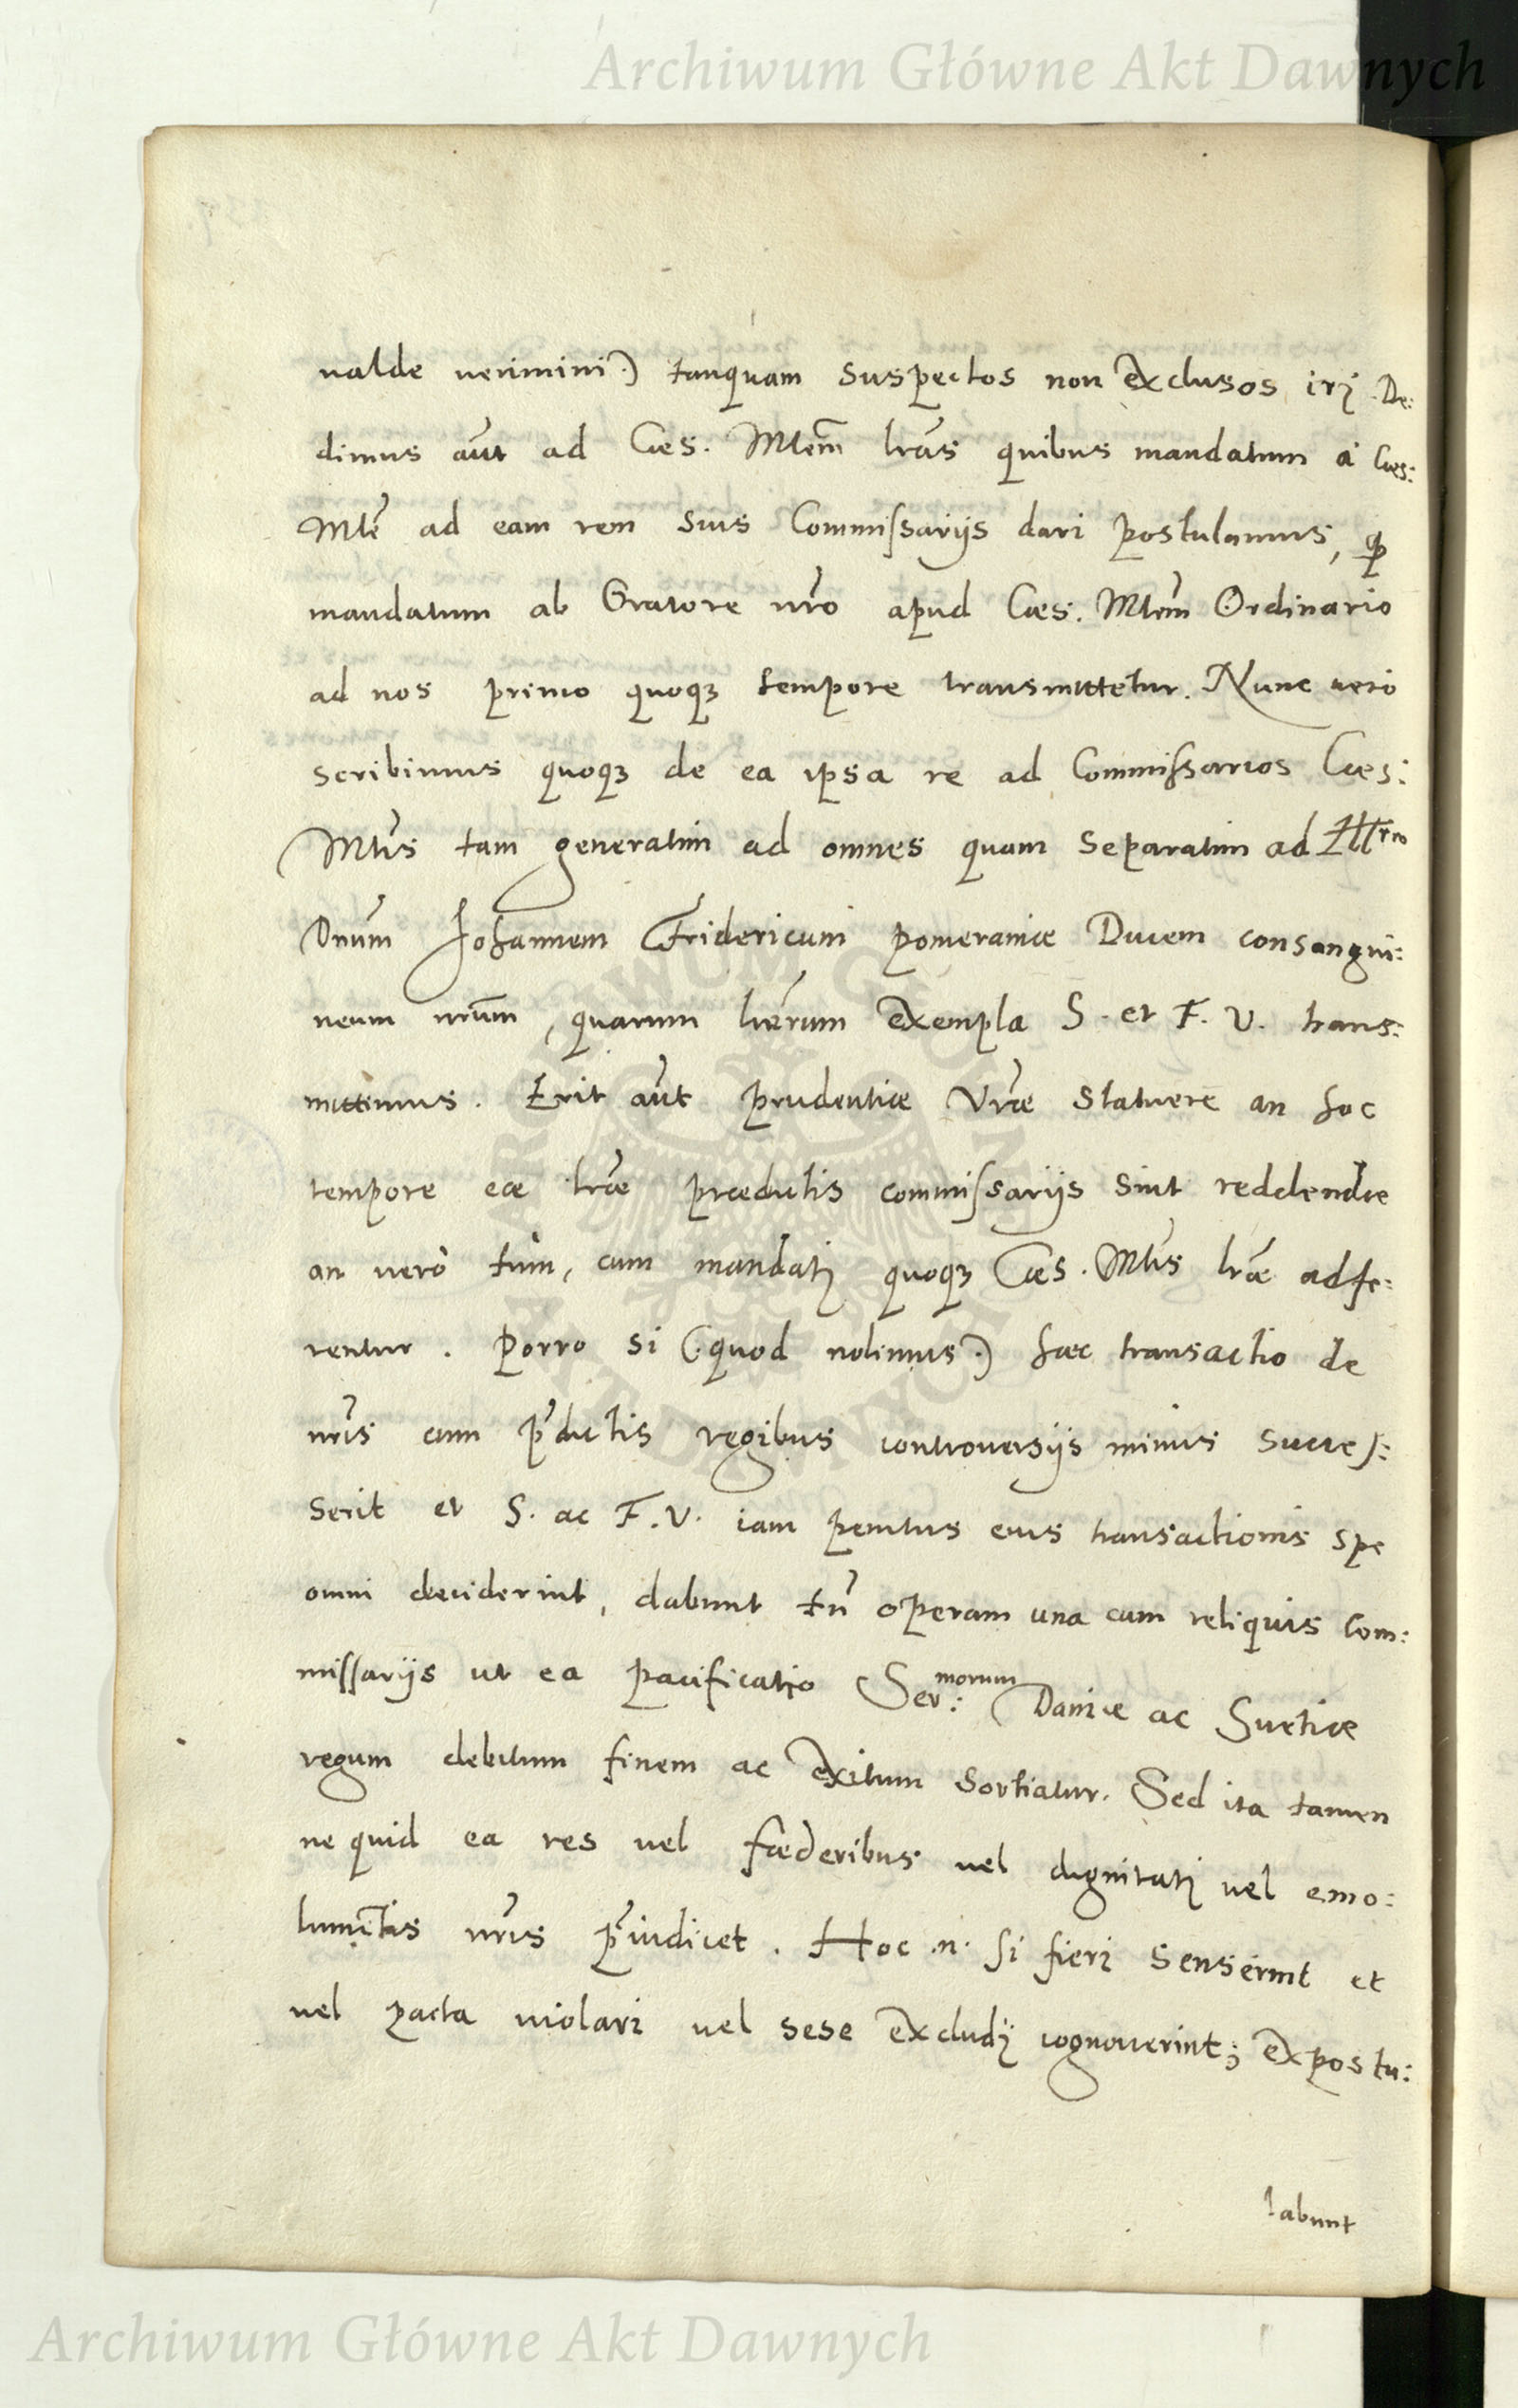 Archiwum Główne Akt Dawnych
valde verimini.) tanquam suspectos non exclusos iri. De:
dimus aũt ad Cæs. Mtem̃ lrãs quibus mandatum à Cæs:
Mtẽ ad eam rem suis Commissarijs dari postulamus, q̃
mandatum ab Oratore nr̃o apud Cæs. Mtem̃ Ordinario
ad nos primo quoqȝ tempore transmittetur. Nunc vero
scribimus quoqȝ de ea ipsa re ad Commissarios Cæs:
Mtis̃ tam generatim ad omnes quam separatim ad Illrm
Dnum̃ Johannem Fridericum Pomeraniæ Ducem consangui:
neum nr̃um, quarum lr̃arum exempla S. et F. V. trans:
mittimus. Erit aũt prudentiæ Vr̃æ statuere an hoc
tempore eæ lr̃æ prædictis commissarijs sint reddendæ
an vero tùm, cum mandati quoqȝ Cæs. Mtis̃ lr̃æ adfe:
rentur. Porro si (quod nolimus.) hæc transactio de
nr̃is cum p̃dictis regibus controversijs minus succes:
serit et S. ac F. V. iam penitus eius transactionis spe
omni deciderint, dabunt tñ operam una cum reliquis Com:
missarijs ut ea pacificatio Ser:morum Daniæ ac Suetiæ
regum debitum finem ac exitum sortiatur. Sed ita tamen
ne quid ea res vel fœderibus vel dignitati vel emo:
lumẽtis nr̃is p̃iudicet. Hoc .n. si fieri senserint et
vel pacta violari vel sese excludi cognoverint; expostu:
labunt
ARCHIWUM GŁÓWNE AKT DAWNYCH
Archiwum Główne Akt Dawnych